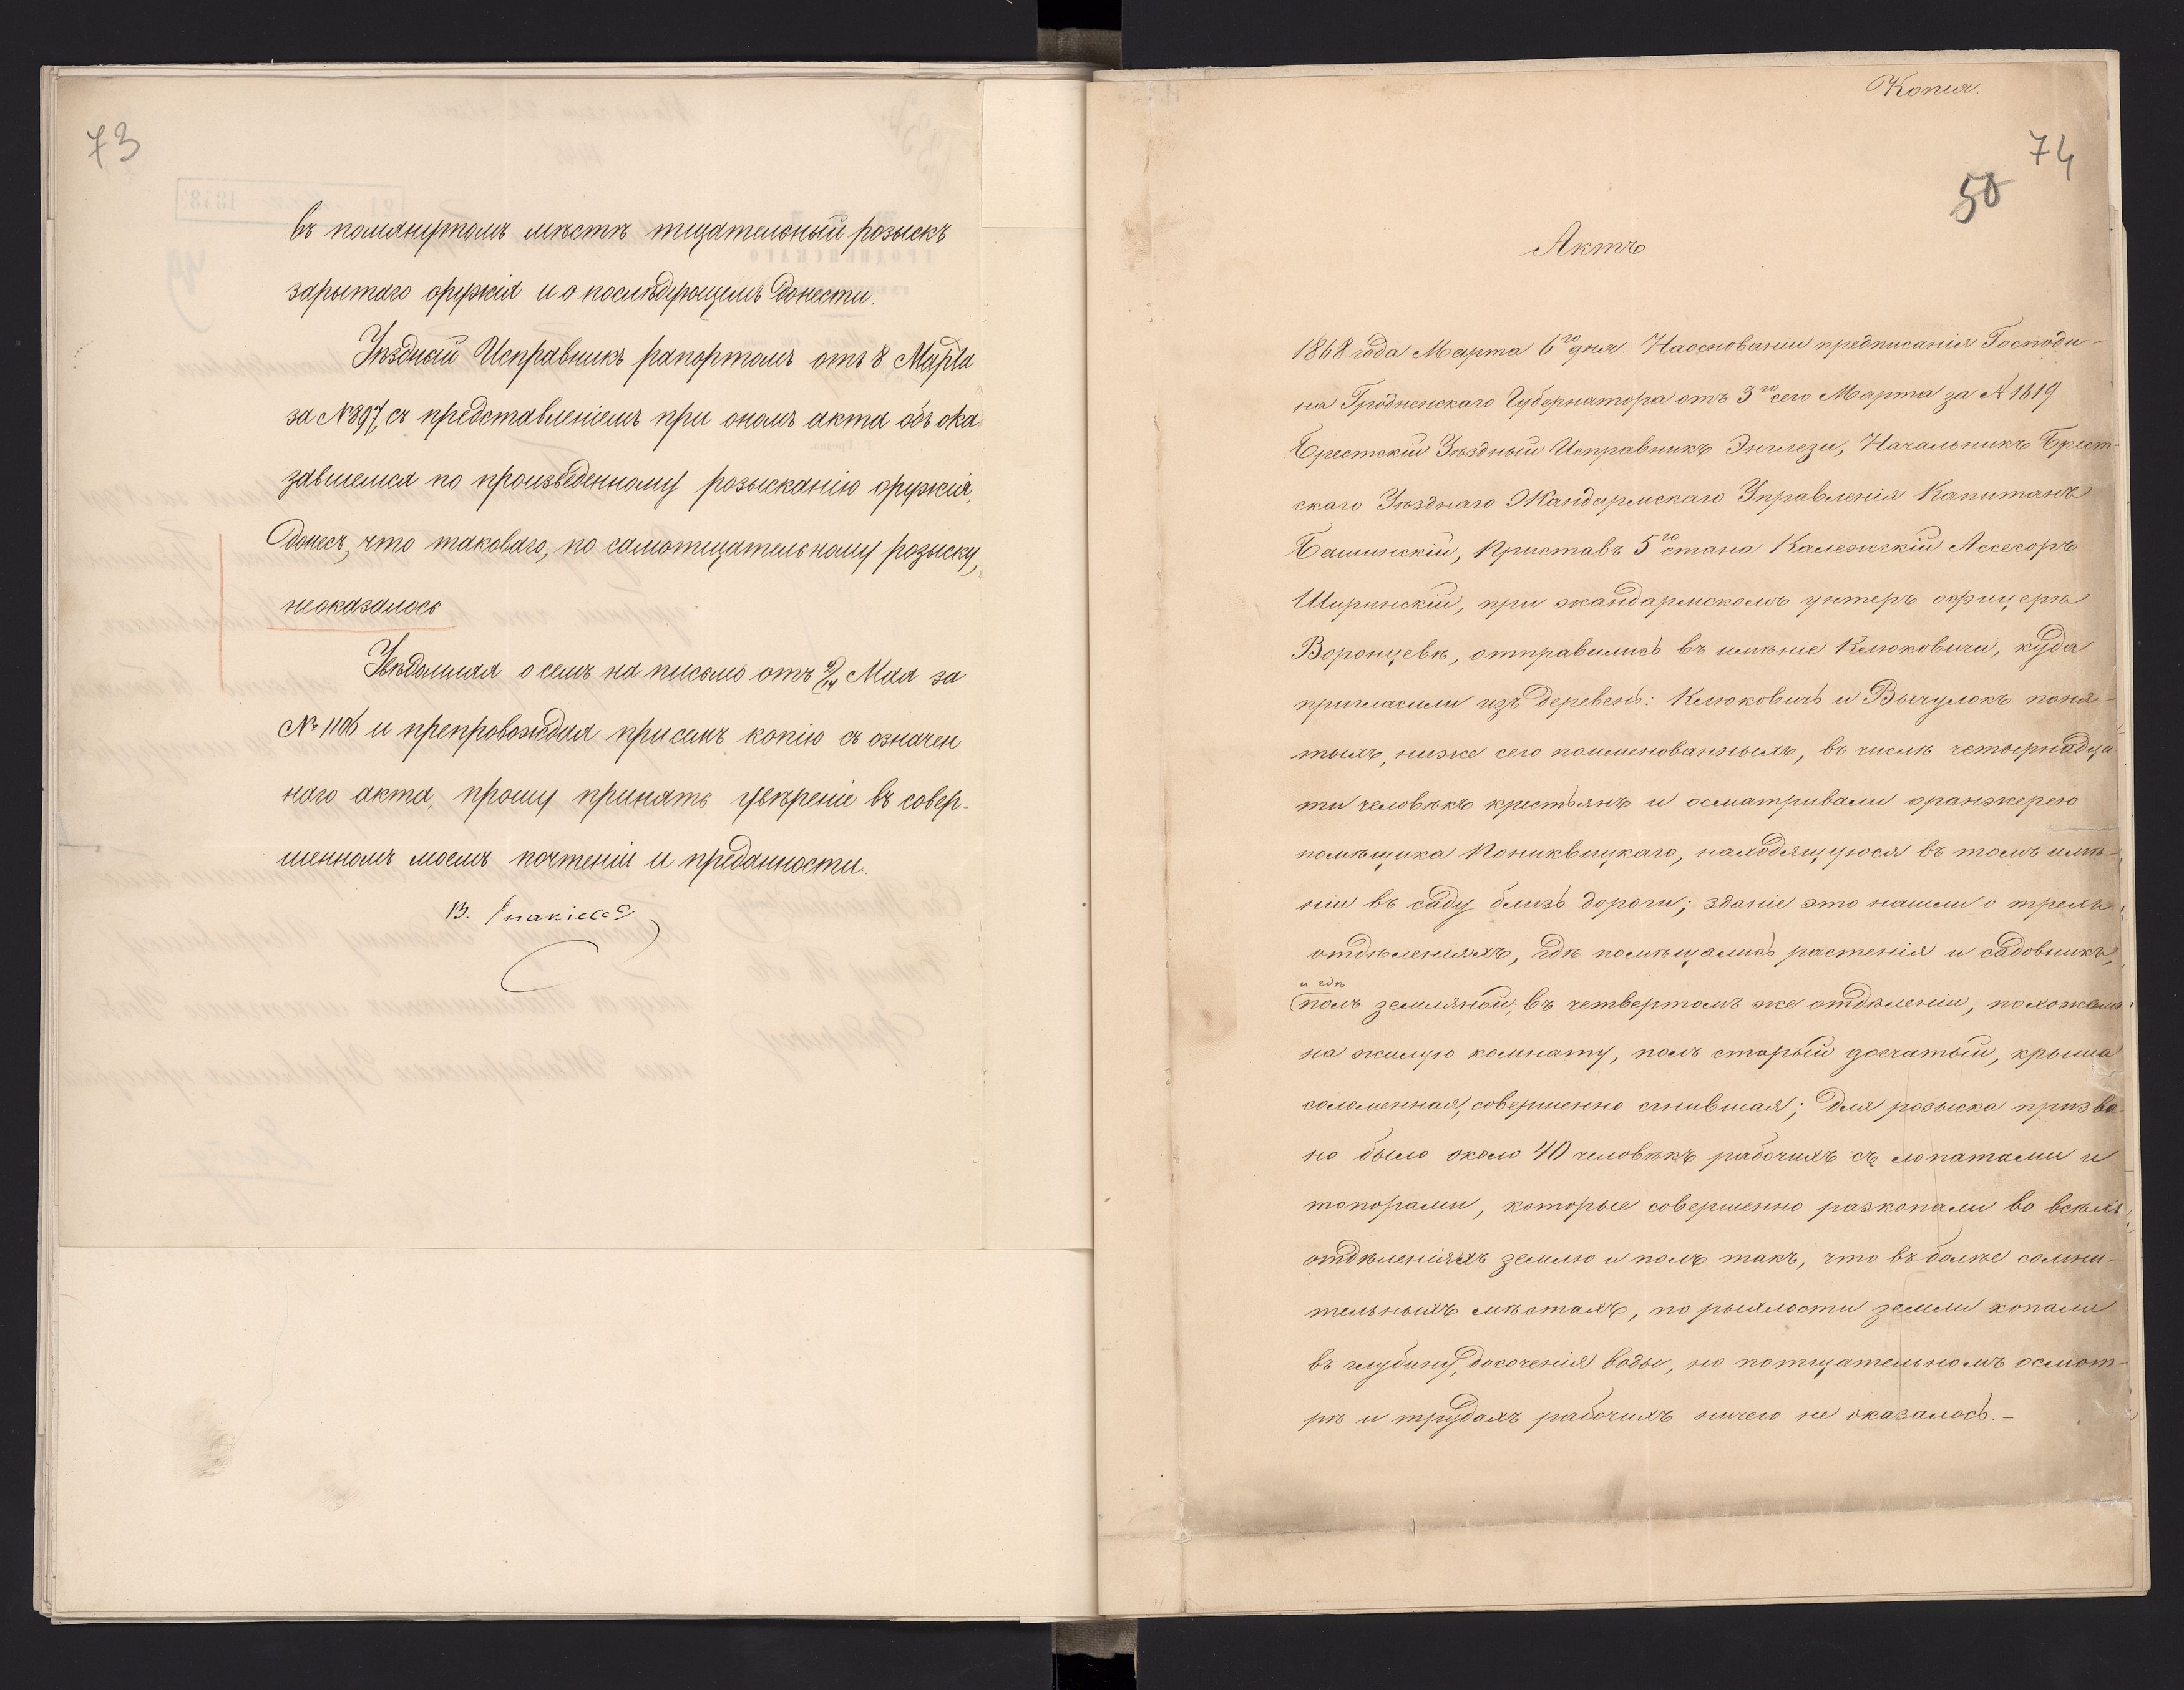 73
въ помянутомъ мѣстѣ тщательный розыскъ
зарытаго оружія и о послѣдующемъ донести.
Уѣздный Исправникъ рапортомъ отъ 8 Марта
за №897, съ представленіемъ при ономъ акта объ ока
завшемся по произведенному розысканію оружія,
донесъ, что таковаго, по самотщательному розыску,
неоказалось
Увѣдомляя о семъ на письмо отъ 2/14 Мая за
№ 1106 и препровождая присемъ копію съ означен
наго акта, прошу принять увѣреніе въ совер-
шенномъ моемъ почтеніи и преданности.
В.
Копия.
74
50
Актъ
1868 года Марта 6го дня. Наоснованіи предписанія Господи-
на Гродненскаго Губернатора отъ 3го сего Марта за № 1619
Брестскій Уѣздный Исправникъ Энглези, Начальникъ Брест-
скаго Уѣзднаго Жандармскаго Управленія Капитанъ
Башинскій, Приставъ 5го стана Калежскій Ассесоръ
Ширинскій, при жандармскомъ унтеръ офицерѣ
Воронцевѣ, отправились въ имѣніе Клюковичи, куда
пригласили изъ деревень: Клюковичъ и Вычулокъ поня-
тыхъ, ниже сего поименованныхъ, въ числѣ четырнадца
ти человѣкъ крестьянъ и осматривали оранжерею
помѣщика Пониквицкаго, находящуюся въ томъ имѣ-
ніи въ саду близь дороги; зданіе это нашли о трехъ
отдѣленіяхъ, гдѣ помѣщались растенія и садовникъ,
и гдѣ
полъ земляной; въ четвертомъ же отдѣленіи, похожемъ
на жилую комнату, полъ старый досчатый, крыша
соломенная, совершенно сгнившая; для розыска призва
но было около 40 человѣкъ рабочихъ съ лопатами и
топорами, которые совершенно разкопали во всѣхъ
отдѣленіяхъ землю и полъ такъ, что въ болѣе сомни-
тельныхъ мѣстахъ, по рыхлости земли копали
въ глубину, досоченія воды, но потщательномъ осмот-
рѣ и трудахъ рабочихъ ничего не оказалось.-